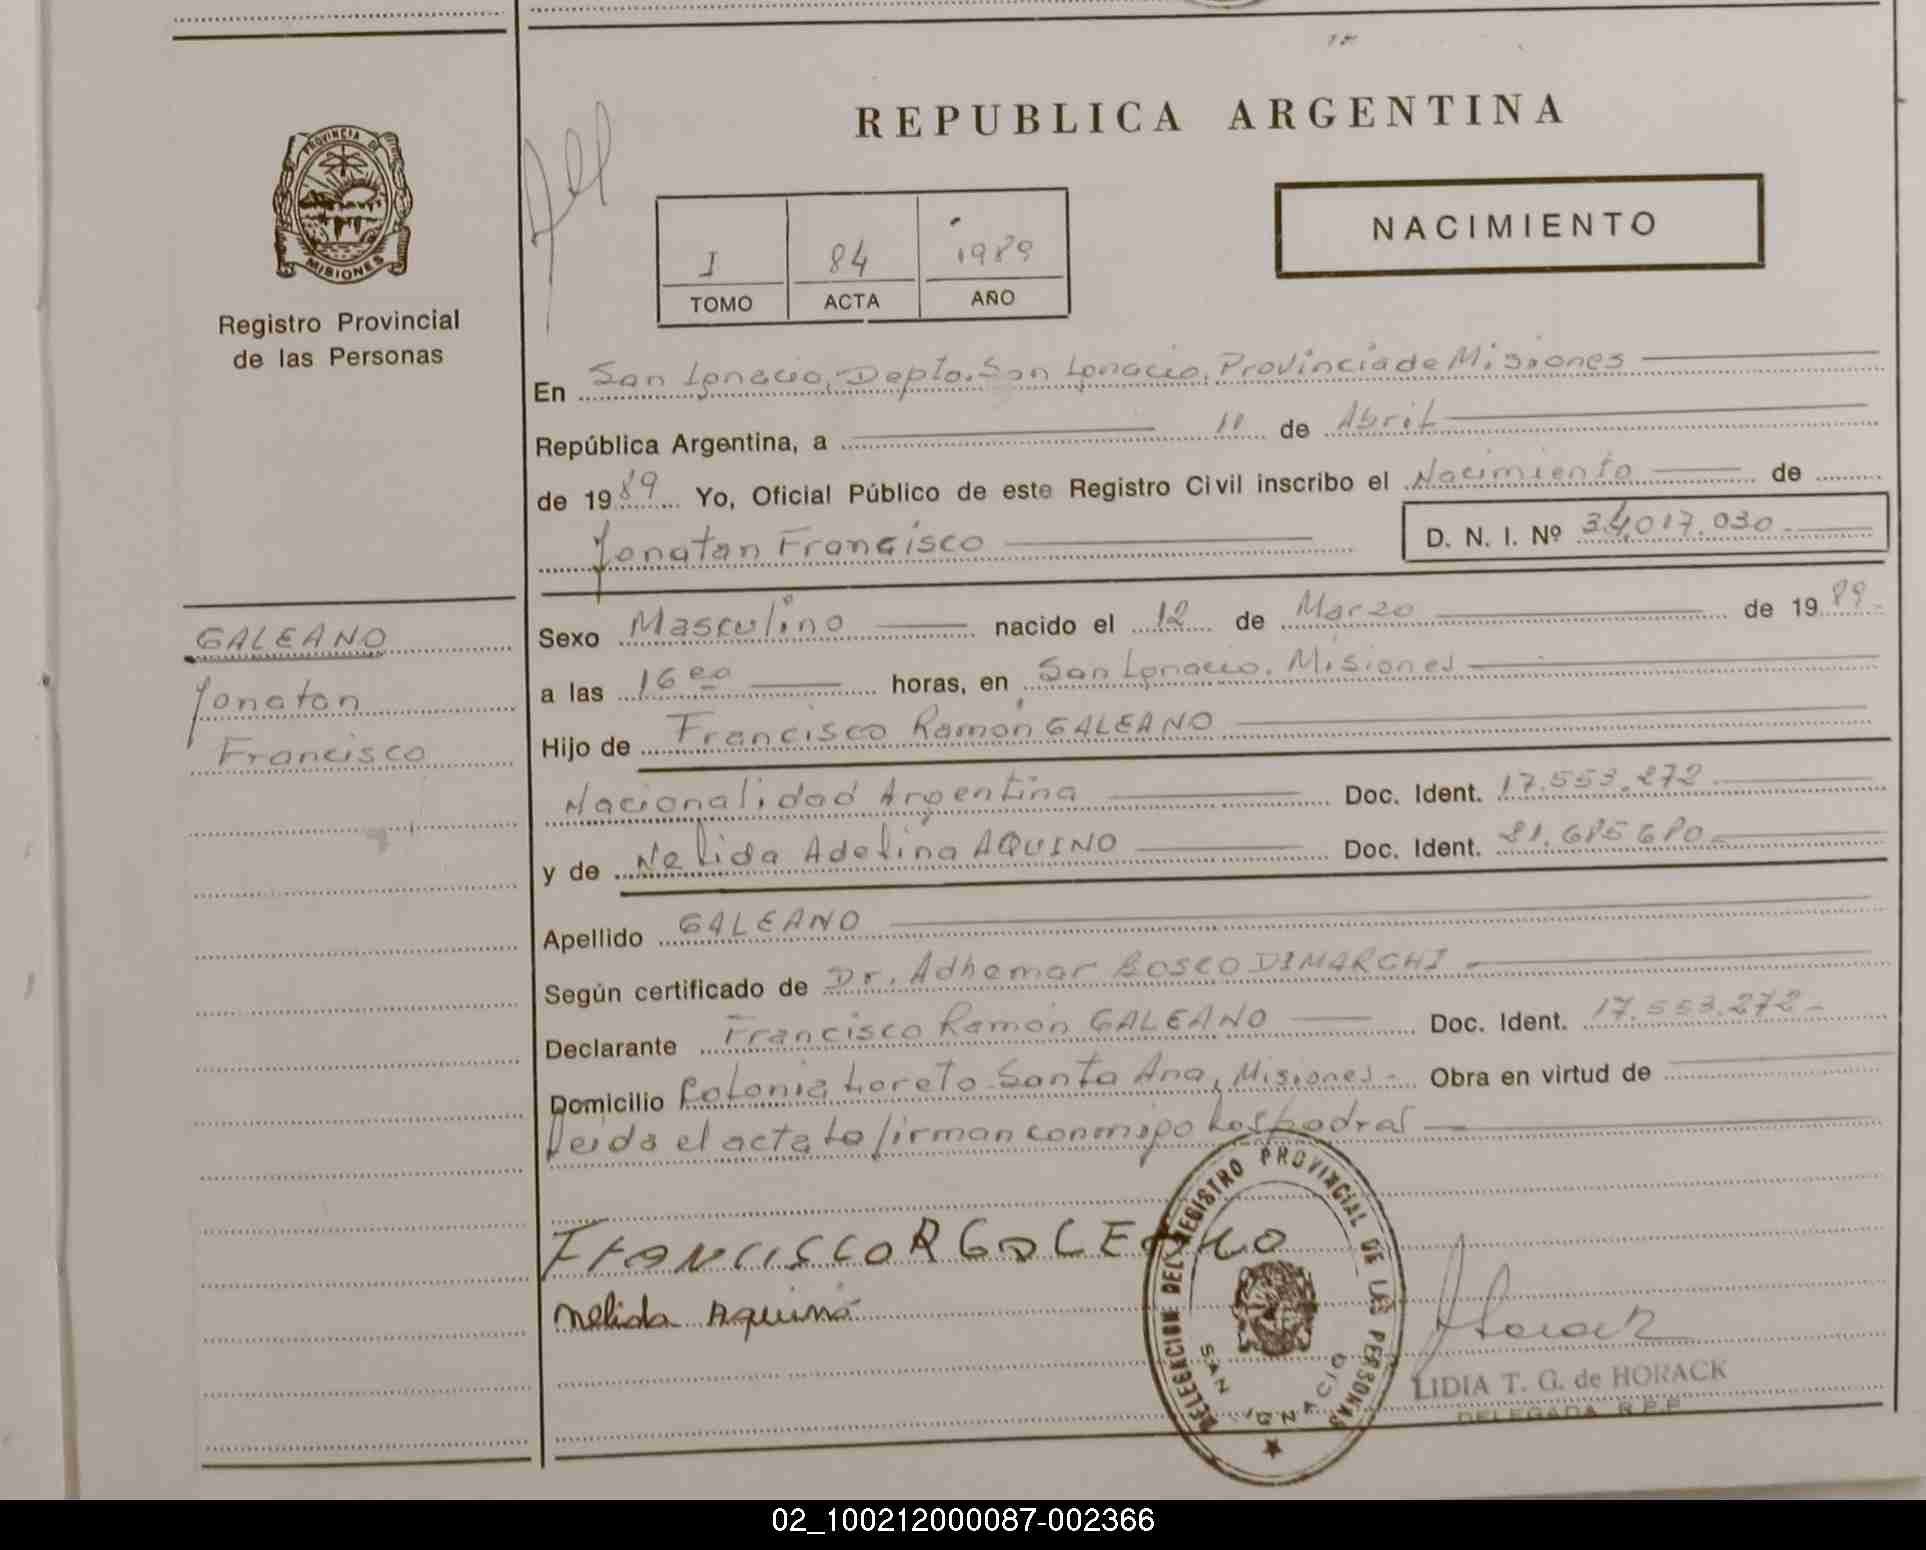 REPUBLICA ARGENTINA
PROVINCIA DE
MISIONES
Registro Provincial
de las Personas
I 84 1989
TOMO ACTA AÑO
NACIMIENTO
En San Ignacio, Depto. San Ignacio, Provincia de Misiones
República Argentina, a 11 de Abril
de 1989 Yo, Oficial Público de este Registro Civil inscribo el Nacimiento de
Jonatan Francisco
D. N. I. Nº 34.017.030.-
GALEANO
Jonatan
Francisco
Sexo Masculino nacido el 12 de Marzo de 1989.-
a las 16 horas, en San Ignacio, Misiones
Hijo de Francisco Ramón GALEANO
Nacionalidad Argentina Doc. Ident. 17.553.272
y de Nelida Adelina AQUINO Doc. Ident. 21.685680
Apellido GALEANO
Según certificado de Dr. Adhemar BOSCO DIMARCHI
Declarante Francisco Ramón GALEANO Doc. Ident. 17.553.272-
Domicilio Colonia Loreto-Santa Ana, Misiones- Obra en virtud de
leida el acta la firman conmigo los padres
Francisco R GALEANO
Nelida Aquino
DELEGACION DEL REGISTRO PROVINCIAL DE LAS PERSONAS
SAN IGNACIO
LIDIA T. G. de HORACK
DELEGADA R.P.P.
02_100212000087-002366